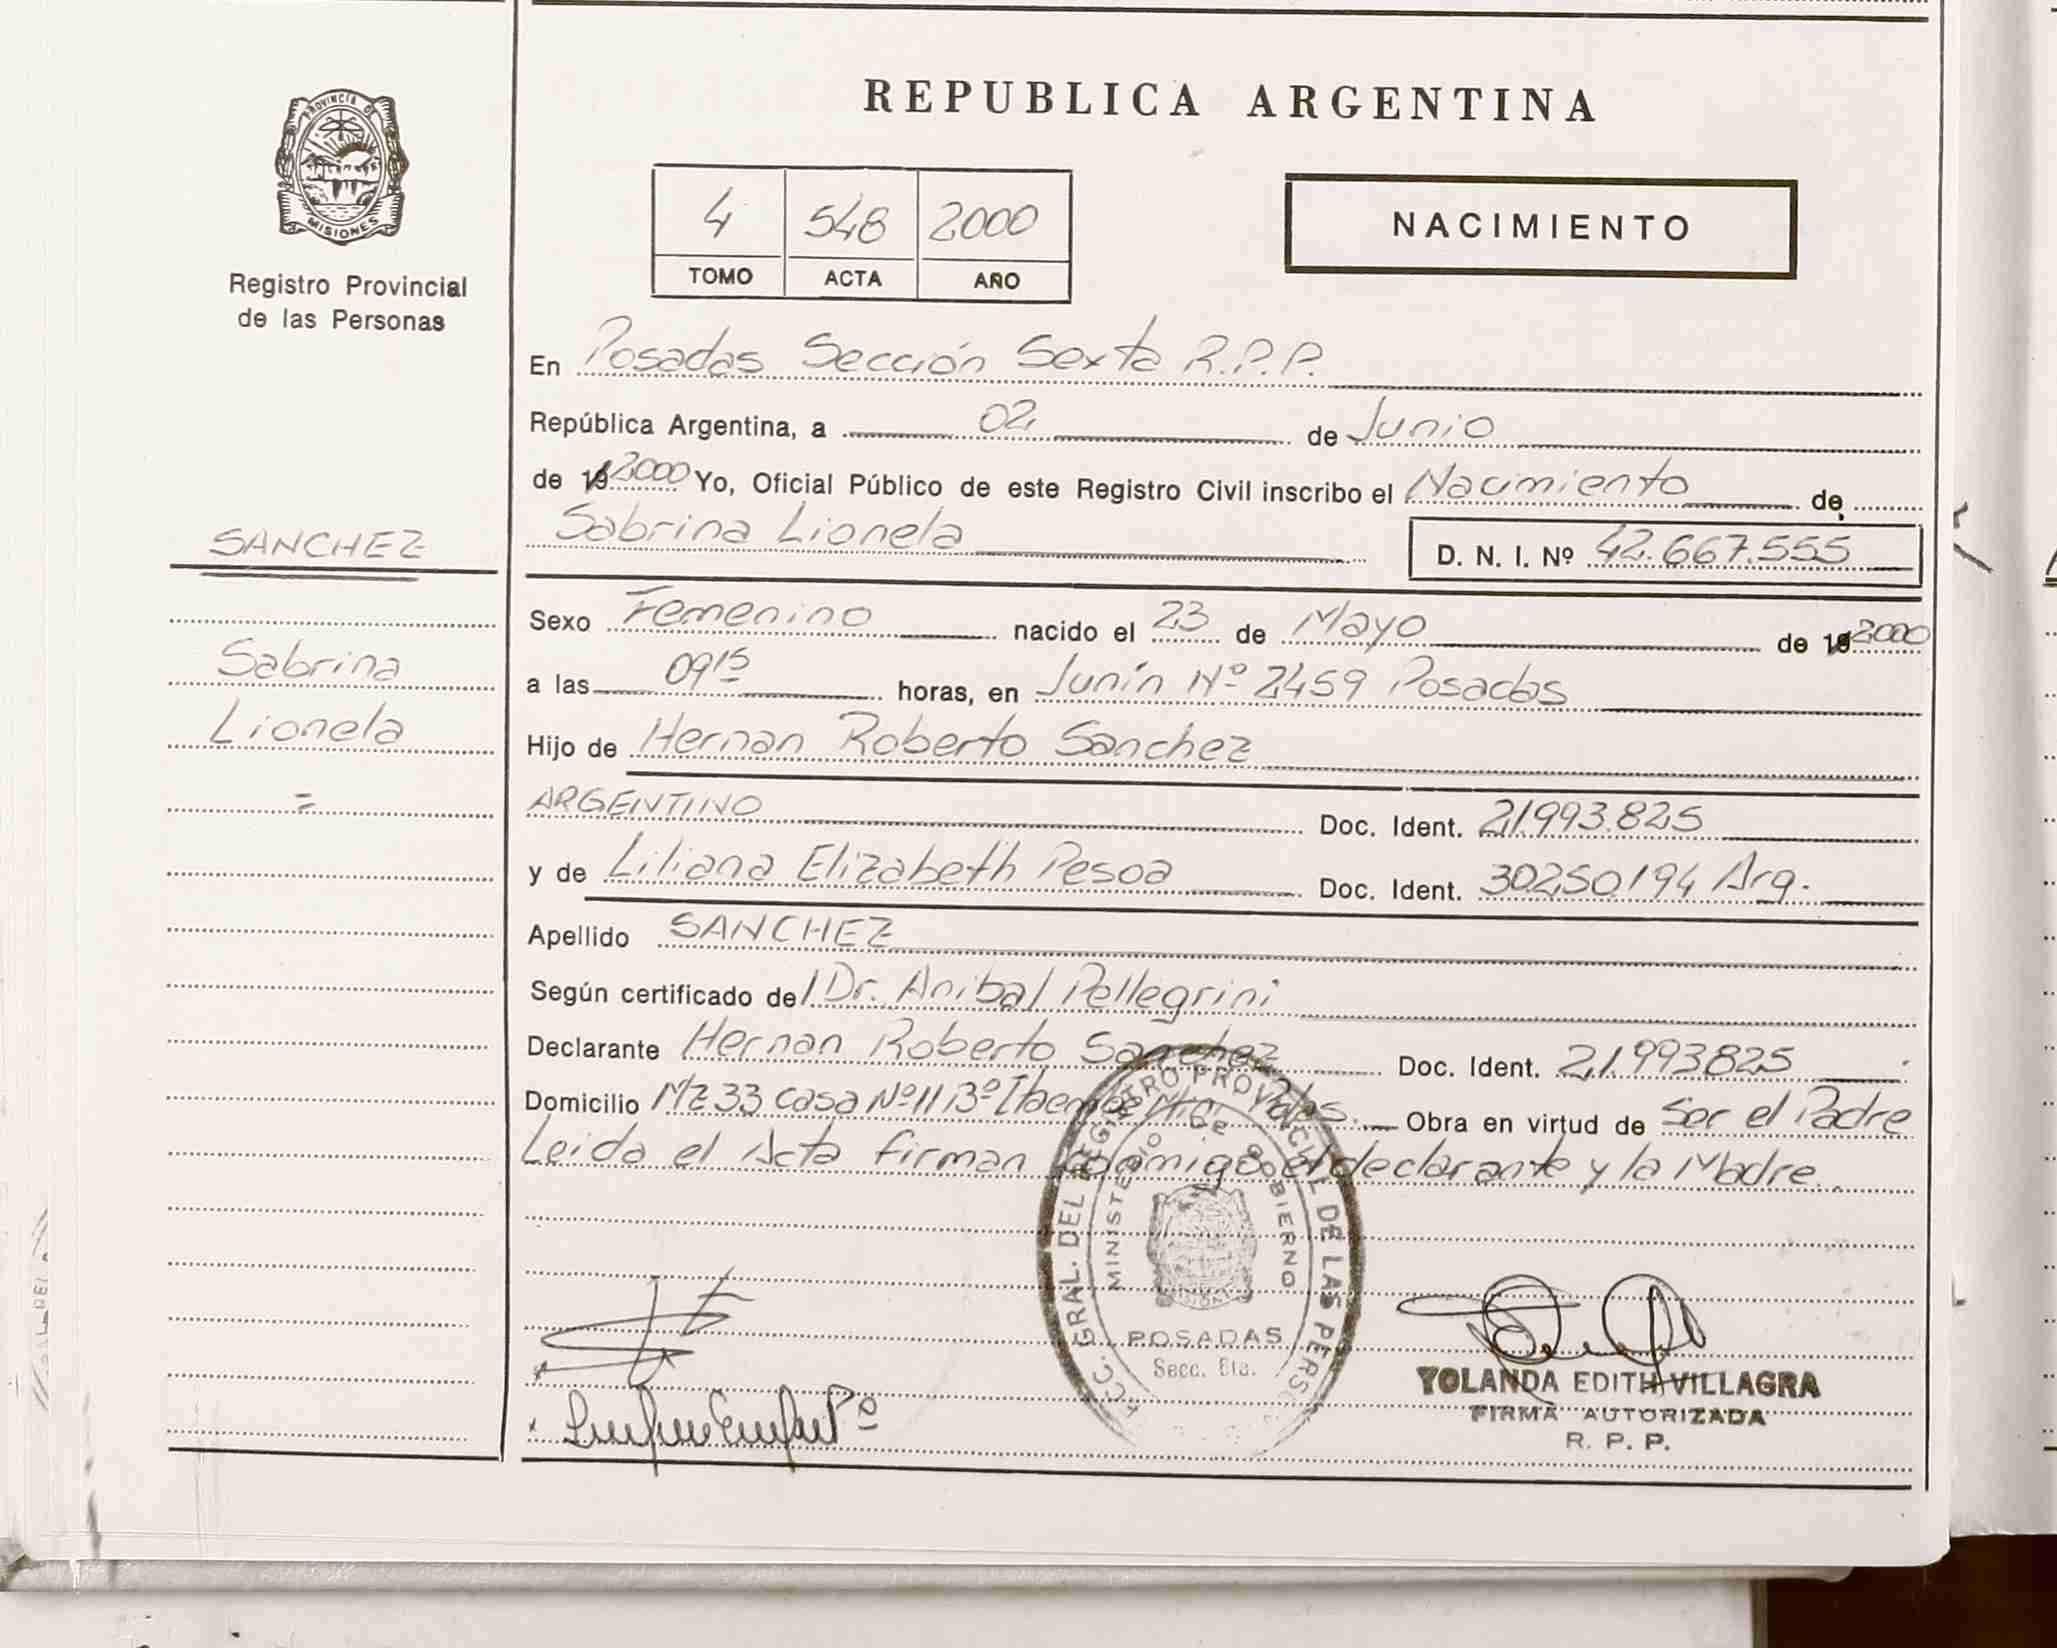 REPUBLICA ARGENTINA
PROVINCIA D
MISIONES
Registro Provincial
de las Personas
4 548 2000
TOMO ACTA AÑO
NACIMIENTO
En Posadas Sección Sexta R.P.P.
República Argentina, a 02 de Junio
de 19 2000 Yo, Oficial Público de este Registro Civil inscribo el Nacimiento de
Sabrina Lionela D. N. I. Nº 42.667.555
SANCHEZ
Sabrina
Lionela
=
Sexo Femenino nacido el 23 de Mayo de 19 2000
a las 0915 horas, en Junín Nº 2459 Posadas
Hijo de Hernan Roberto Sanchez
ARGENTINO Doc. Ident. 21.993.825
y de Liliana Elizabeth Pesoa Doc. Ident. 30.250.194 Arg.
Apellido SANCHEZ
Según certificado del Dr. Anibal Pellegrini
Declarante Hernan Roberto Sanchez Doc. Ident. 21.993825
Domicilio Mz 33 Casa Nº 11 Bº Itaembe Mini Pdas. Obra en virtud de Ser el Padre
Leida el Acta firman conmigo el declarante y la Madre.
GRAL. DEL REGISTRO PROVINCIAL DE LAS PERS
MINISTERIO DE GOBIERNO
POSADAS
Secc. 6ta.
YOLANDA EDITH VILLAGRA
FIRMA AUTORIZADA
R. P. P.